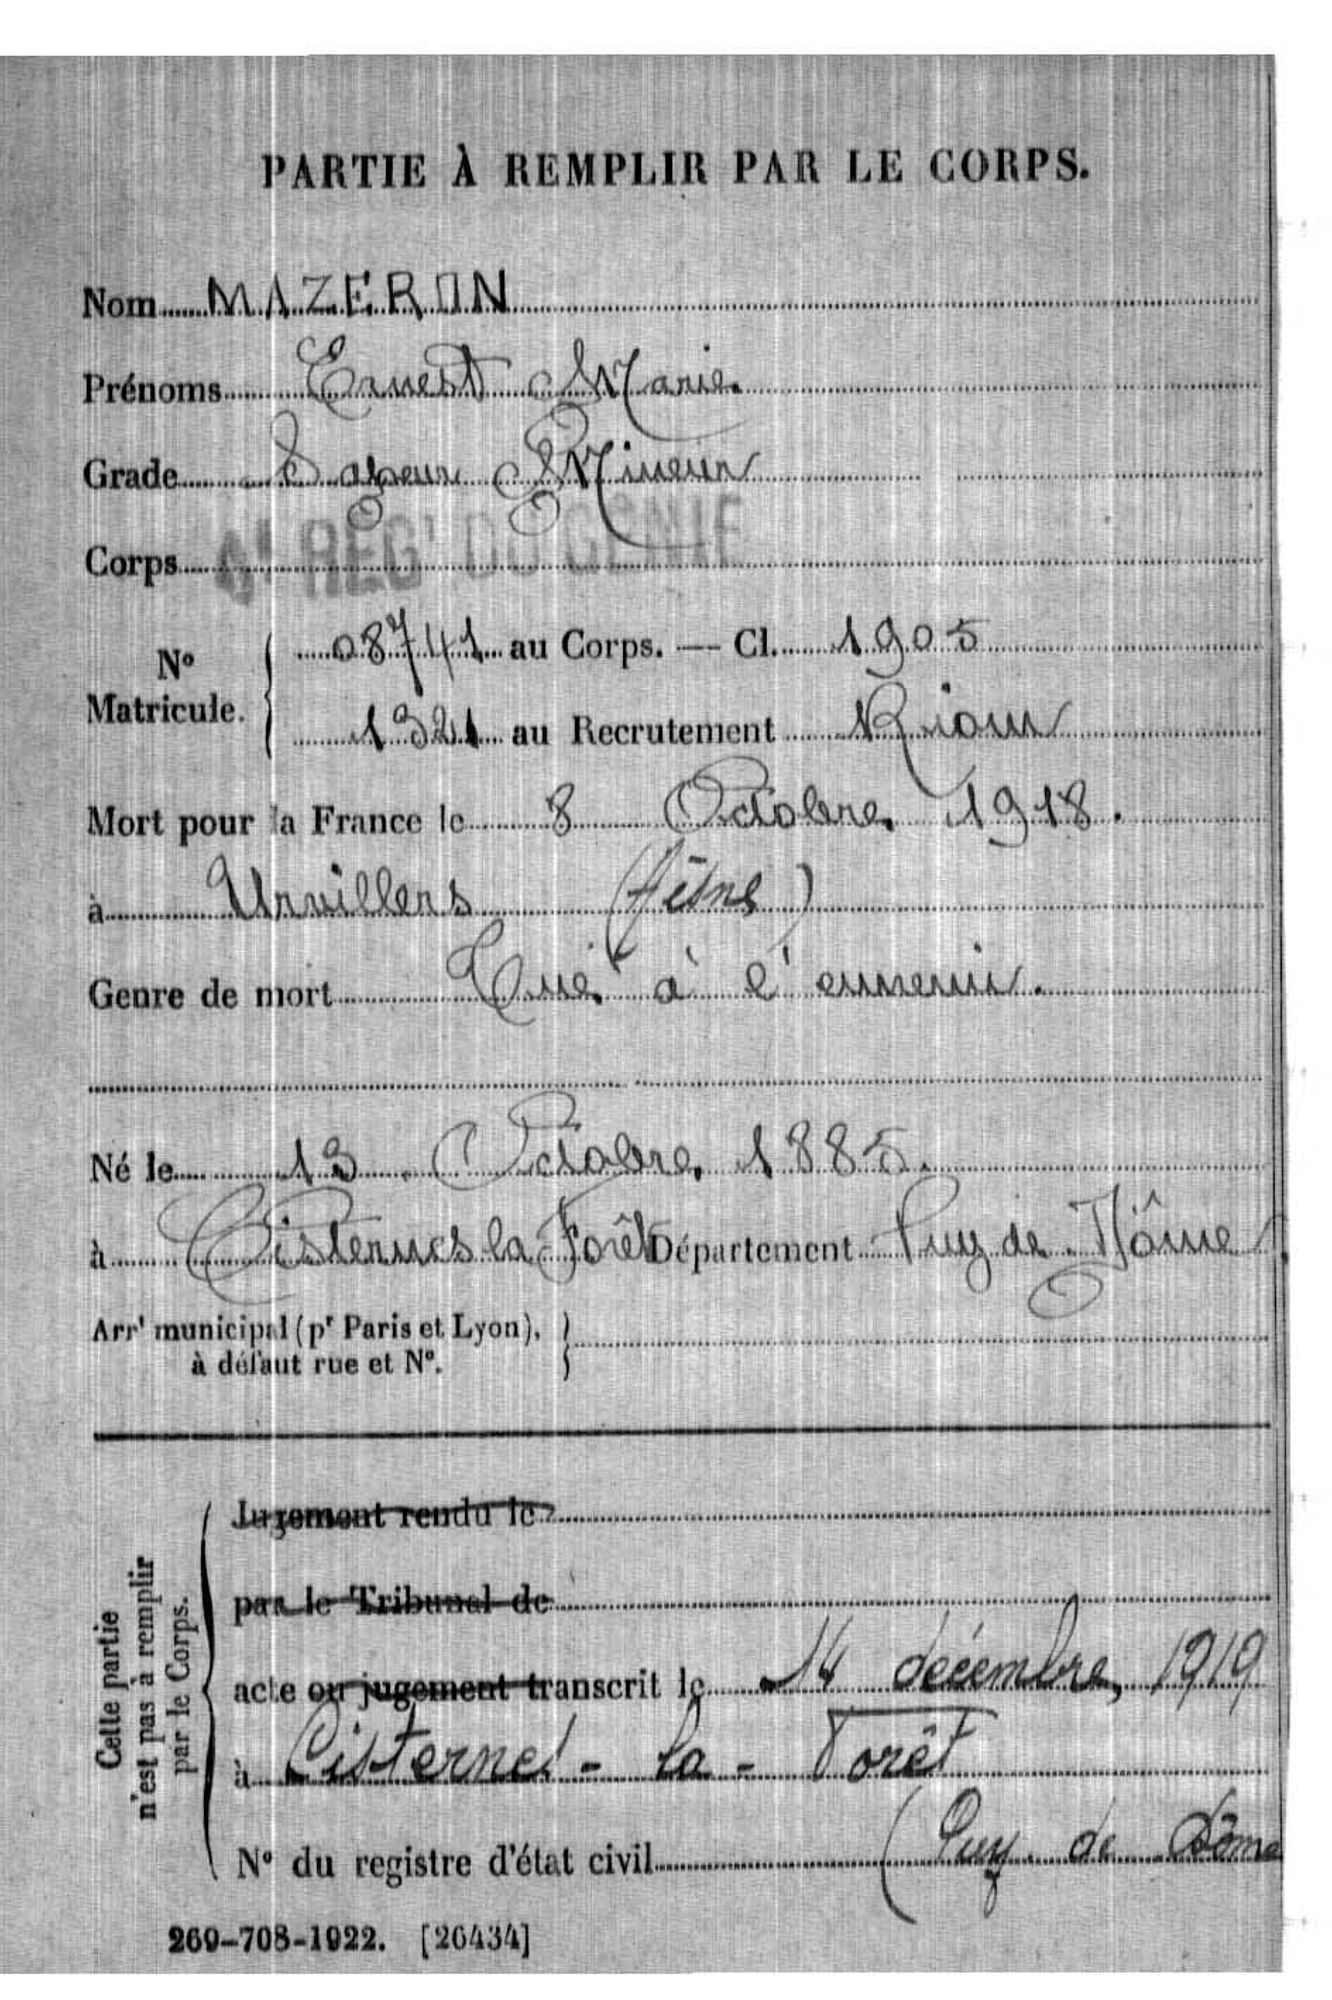 PARTIE À REMPLIR PAR LE CORPS.
Nom MAZERON
Prénoms Ernest Marie
Grade Sapeur Mineur
Corps 4e REGt DU GENIE
No Matricule. 08741 au Corps. — Cl. 1905
1321 au Recrutement Riom
Mort pour la France le 8 Octobre 1918.
à Urvillers (Aisne)
Genre de mort Tué à l'ennemi.
Né le 13 Octobre 1885.
à Cisternes la Forêt Département Puy de Dôme
Arrt municipal (pr Paris et Lyon),
à défaut rue et No.
Cette partie
n'est pas à remplir
par le Corps.
Jugement rendu le
par le Tribunal de
acte ou jugement transcrit le 14 décembre, 1919
à Cisternes - la - Forêt
No du registre d'état civil (Puy de Dôme
269-708-1922. [26434]